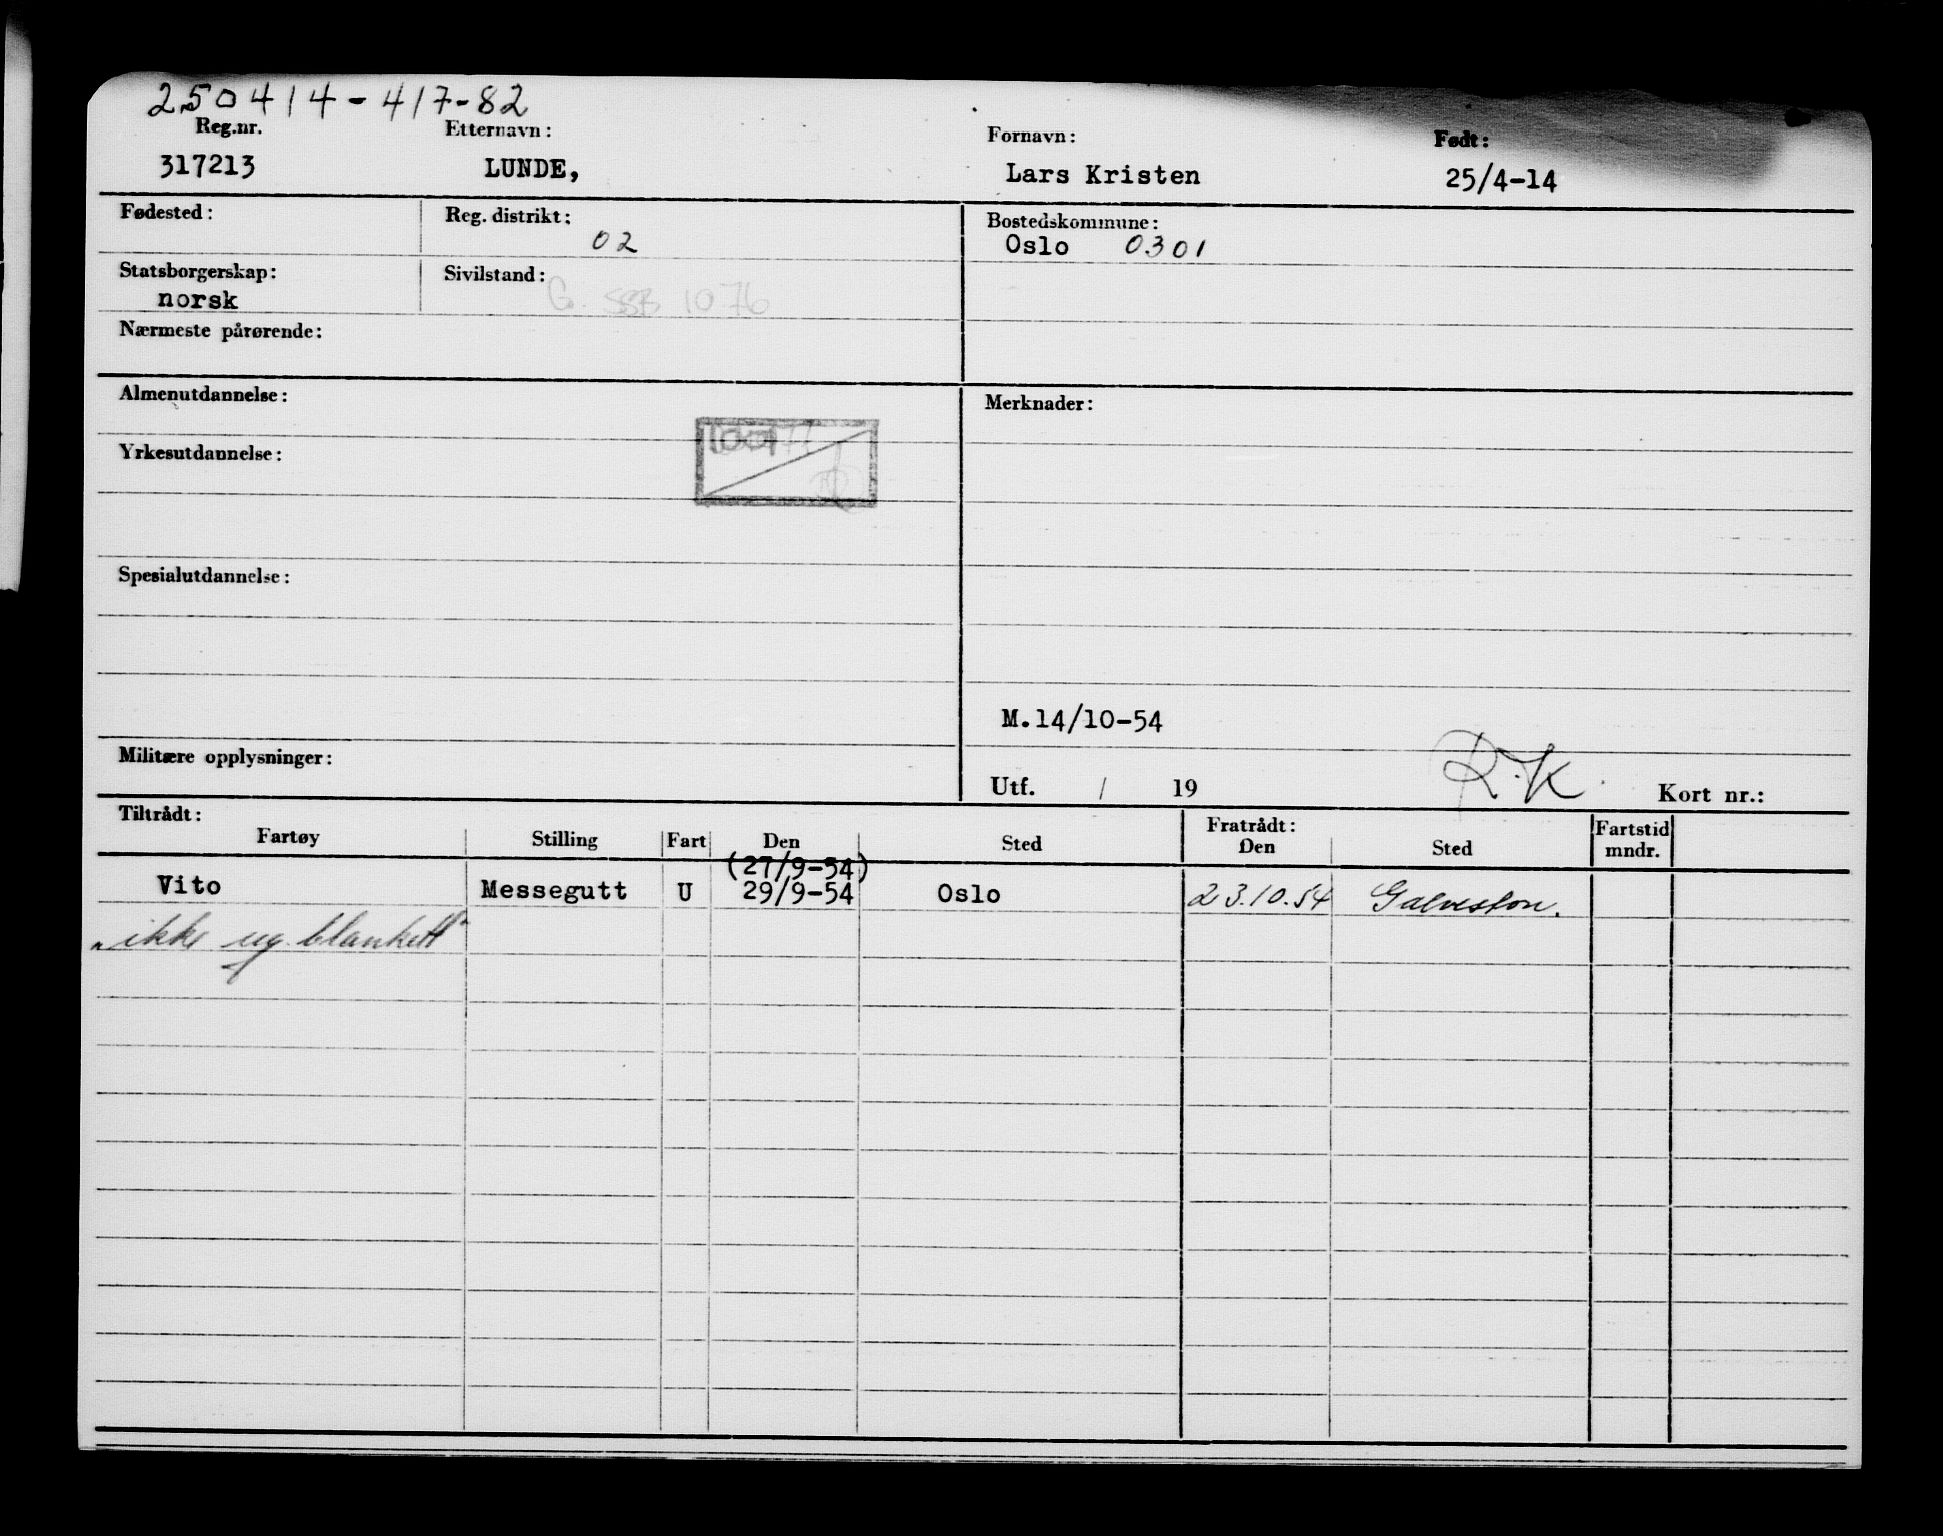 250414-417-82
Reg.nr. Etternavn: Fornavn: Født:
317213 LUNDE, Lars Kristen 25/4-14
Fødested: Reg. distrikt: Bostedskommune:
02 Oslo 0301
Statsborgerskap: Sivilstand:
norsk G. SSB 1076
Nærmeste pårørende:
Almenutdannelse: Merknader:
Yrkesutdannelse:
Spesialutdannelse:
M.14/10-54
Militære opplysninger:
Utf. / 19 R.K. Kort nr.:
Tiltrådt: Fratrådt: Fartstid
Fartøy Stilling Fart Den Sted Den Sted mndr.
(27/9-54)
Vito Messegutt U 29/9-54 Oslo 23.10.54 Galveston.
"ikke ug. blankett"